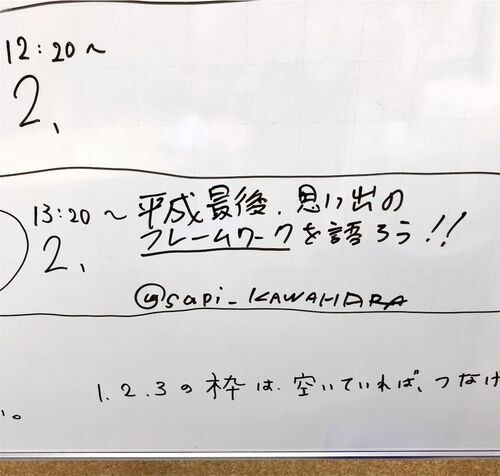 12:20〜
2、
13:20〜 平成最後、思い出の
2、 フレームワークを語ろう!!
@sapi_KAWAHARA
1.2.3の枠は、空いていれば、つなげ
い。